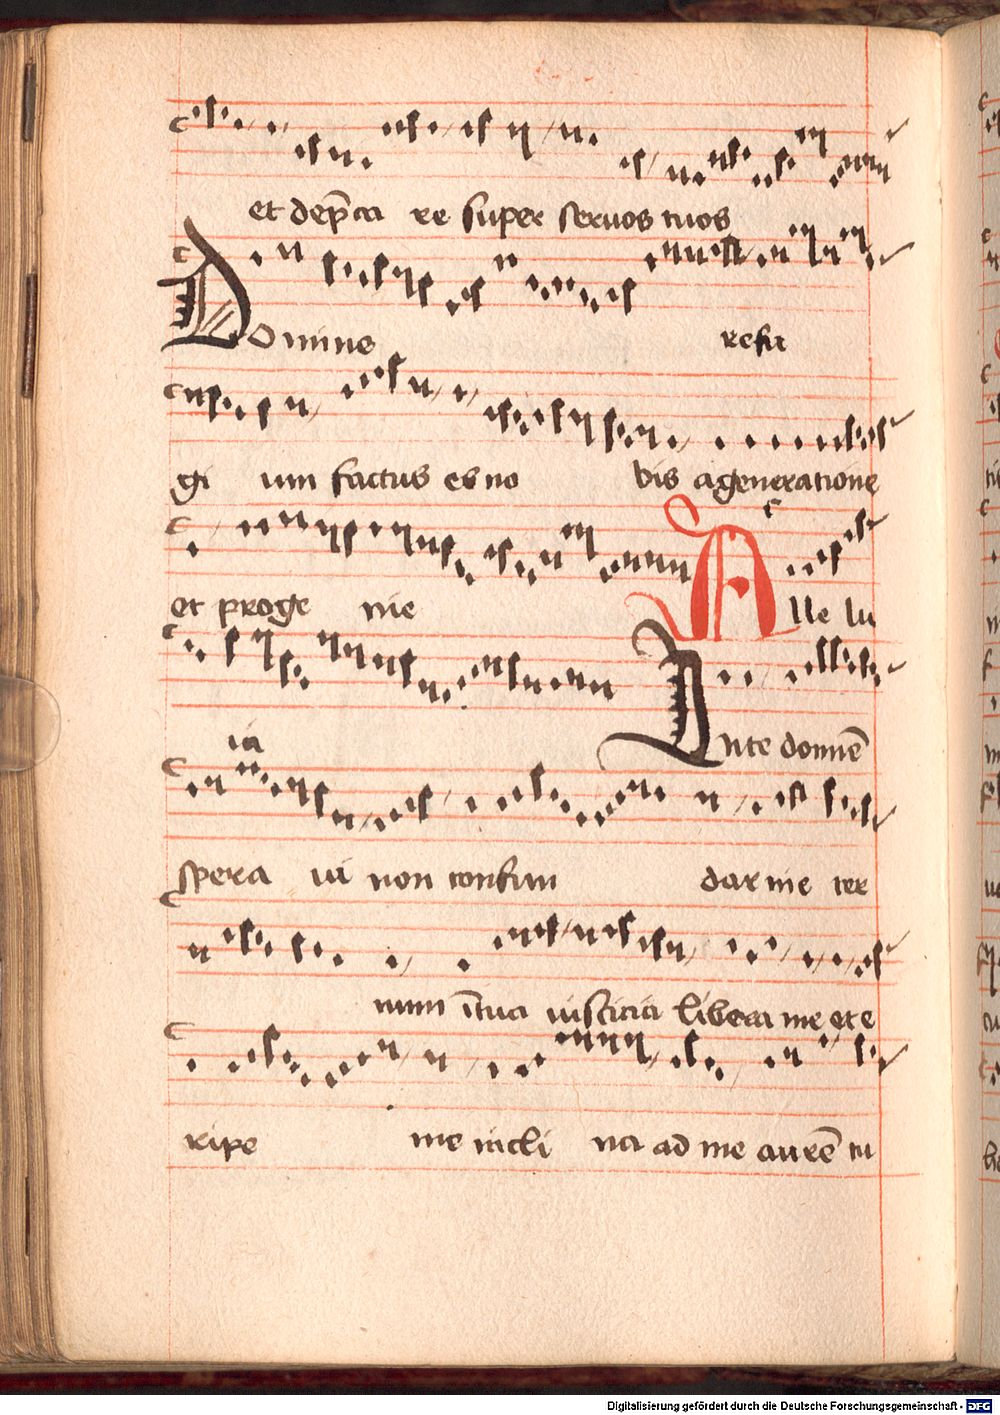 et dep̄ca re super seruos tuos
Domine refu
gi um factus es no bis a generatione
et proge nie Alle lu
ia In te domīe
spera ui non confun dar in e ter
num ī tua iusticia libera me et e
ripe me incli na ad me aurē tu
Digitalisierung gefördert durch die Deutsche Forschungsgemeinschaft - DFG